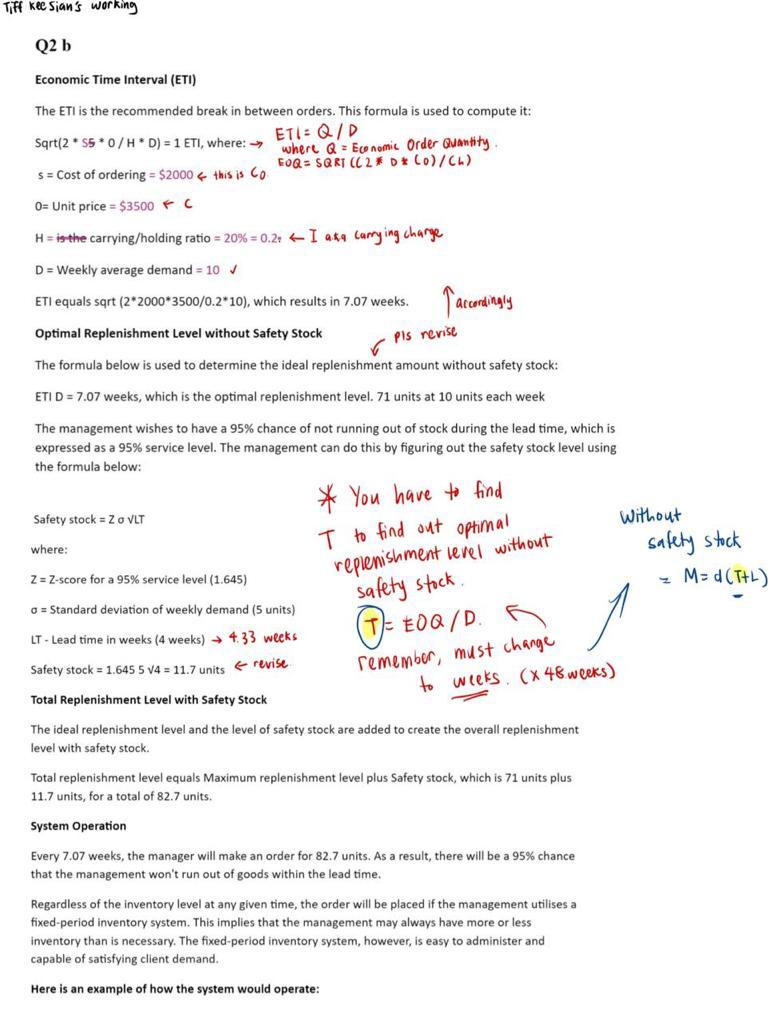 Tiff Kee Sian's working
Q2 b
Economic Time Interval (ETI)
The ETI is the recommended break in between orders. This formula is used to compute it:
Sqrt(2 * S5 * 0 / H * D) = 1 ETI, where: → ETI = Q / D
where Q = Economic Order Quantity.
EOQ = SQRT ((2 * D * Co) / Ch)
s = Cost of ordering = $2000 ← this is Co
0= Unit price = $3500 ← C
H = is the carrying/holding ratio = 20% = 0.2. ← I aka carrying charge
D = Weekly average demand = 10 ✓
ETI equals sqrt (2*2000*3500/0.2*10), which results in 7.07 weeks.
accordingly
Optimal Replenishment Level without Safety Stock
pls revise
The formula below is used to determine the ideal replenishment amount without safety stock:
ETI D = 7.07 weeks, which is the optimal replenishment level. 71 units at 10 units each week
The management wishes to have a 95% chance of not running out of stock during the lead time, which is
expressed as a 95% service level. The management can do this by figuring out the safety stock level using
the formula below:
* You have to find
T to find out optimal
replenishment level without
safety stock.
T = EOQ / D.
remember, must change
to weeks. (x 48 weeks)
Without
safety stock
= M = d(T+L)
Safety stock = Z σ √LT
where:
Z = Z-score for a 95% service level (1.645)
σ = Standard deviation of weekly demand (5 units)
LT - Lead time in weeks (4 weeks) → 4.33 weeks
Safety stock = 1.645 5 √4 = 11.7 units ← revise
Total Replenishment Level with Safety Stock
The ideal replenishment level and the level of safety stock are added to create the overall replenishment
level with safety stock.
Total replenishment level equals Maximum replenishment level plus Safety stock, which is 71 units plus
11.7 units, for a total of 82.7 units.
System Operation
Every 7.07 weeks, the manager will make an order for 82.7 units. As a result, there will be a 95% chance
that the management won't run out of goods within the lead time.
Regardless of the inventory level at any given time, the order will be placed if the management utilises a
fixed-period inventory system. This implies that the management may always have more or less
inventory than is necessary. The fixed-period inventory system, however, is easy to administer and
capable of satisfying client demand.
Here is an example of how the system would operate: